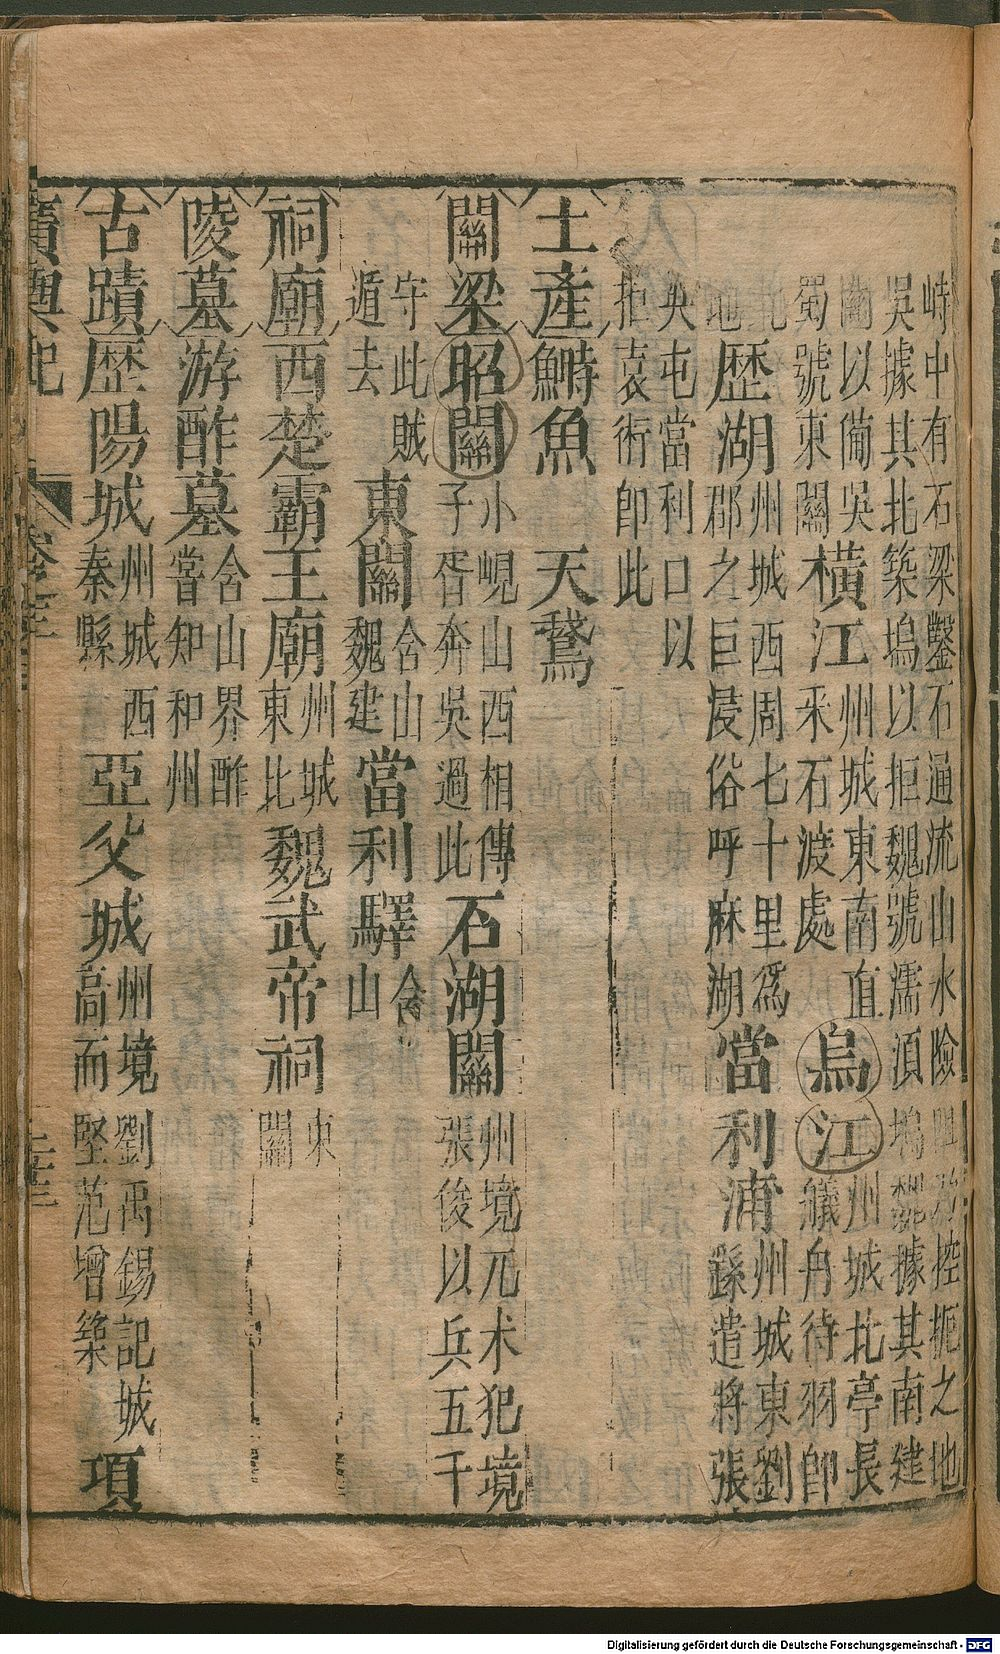 峙中有石梁鑿石通流山水險阻爲控扼之地
吳據其北築塢以拒魏號濡湏塢魏據其南建
關以備吳
蜀號東關
橫江
州城東南直
釆石渡處
烏江
州城北亭長
艤舟待羽卽
此地
歷湖
州城西周七十里爲
郡之巨浸俗呼麻湖
當利浦
州城東劉
繇遣將張
英屯當利口以
拒袁術卽此
土產
鰣魚
天鵞
關梁
昭關
小峴山西相傳
子胥奔吳過此
石湖關
州境兀术犯境
張俊以兵五千
守此賊
遁去
東關
含山
魏建
當利驛
含
山
祠廟
西楚霸王廟
州城
東北
魏武帝祠
東
關
陵墓
游酢墓
含山界酢
嘗知和州
古蹟
歷陽城
州城西
秦縣
亞父城
州境劉禹錫記城
高而堅范增築
項
廣輿記
卷之三
Digitalisierung gefördert durch die Deutsche Forschungsgemeinschaft - DFG